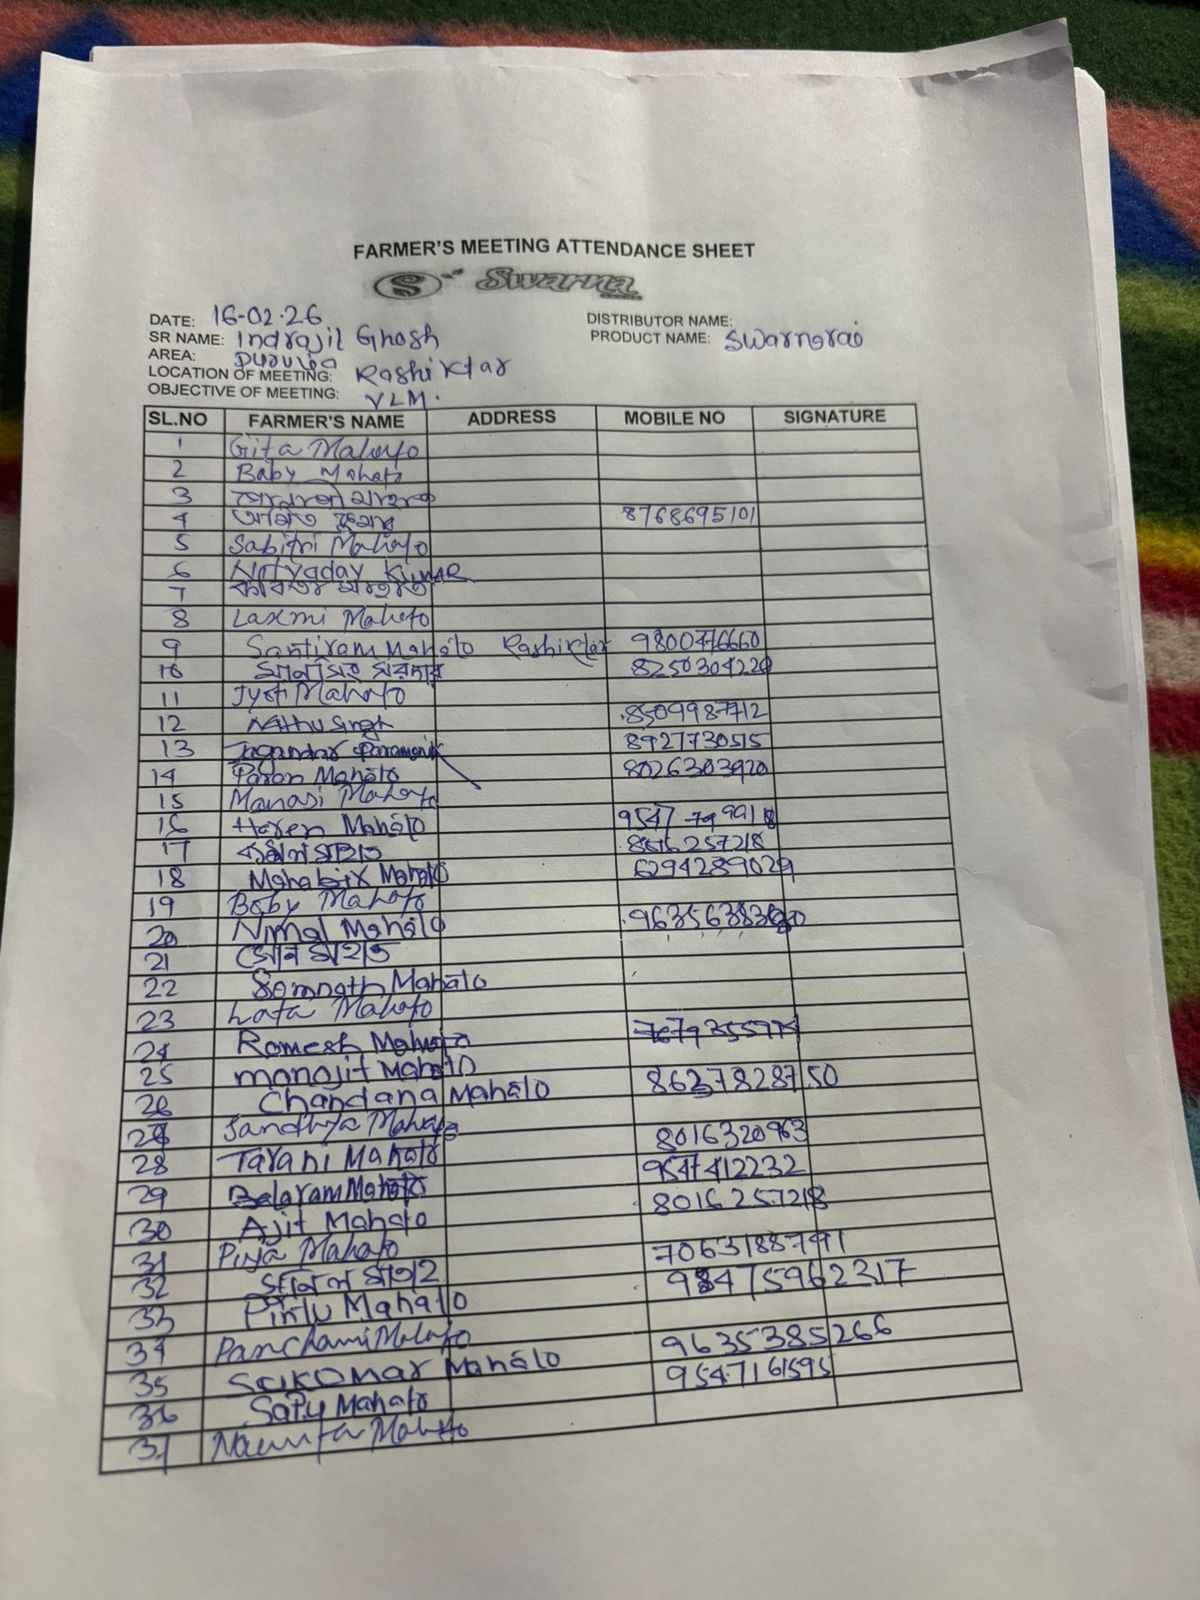 FARMER'S MEETING ATTENDANCE SHEET
S Swarna
DATE: 16-02-26
DISTRIBUTOR NAME:
SR NAME: Indrajil Ghosh
PRODUCT NAME: Swarnarai
AREA:
LOCATION OF MEETING: Rashiktar
OBJECTIVE OF MEETING: VLM.
SL.NO FARMER'S NAME ADDRESS MOBILE NO SIGNATURE
1 Gita Mahato
2 Baby Mahato
3
4 8768695101
5 Sabitri Mahato
6 Nityaday Kumar
7
8 Laxmi Mahato
9 Santiram Mahato Rashiktar
10
11 Jyoti Mahato
12 Nathu Singh 8509987712
13 Jogandar Paramanik 8927730515
14 Paran Mahato 8026303920
15 Manasi Mahato
16 Haren Mahato
17 মাহাত
18 Mahabir Mahato 6294289029
19 Baby Mahato
20 Nimal Mahato
21 মাহাত
22 Somnath Mahato
23 Lata Mahato
24 Romesh Mahato
25 Manojit Mahato
26 Chandana Mahato 8637828750
Sandhya Mahato
28 Tarani Mahato 8016320963
29 Balaram Mahato 9547412232
30 Ajit Mahato 8016257218
31 Puja Mahato
32 7063188791
33 Pintu Mahato
34 Panchami Mahato
35 Sukumar Mahato 9635385266
36 Mahato 9547161595
37 Mahato